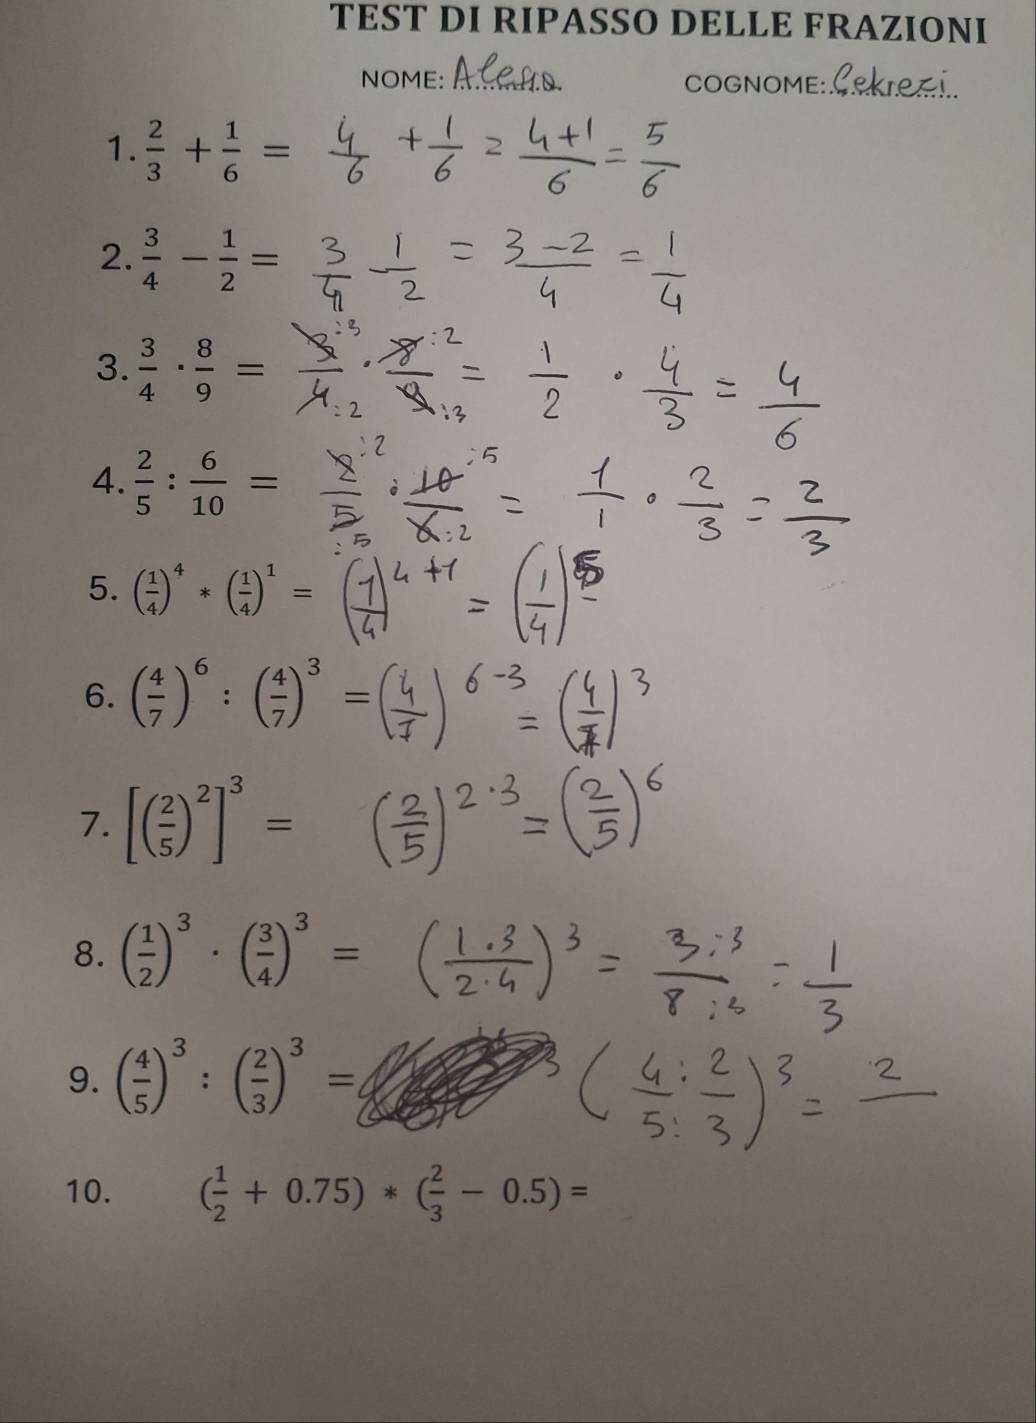 TEST DI RIPASSO DELLE FRAZIONI
NOME: Alessio COGNOME: Çekrezi
1. 2/3 + 1/6 = 4/6 + 1/6 = (4+1)/6 = 5/6
2. 3/4 − 1/2 = 3/4 − 1/2 = (3−2)/4 = 1/4
3. 3/4 · 8/9 = 3:3/4:2 · 8:2/9:3 = 1/2 · 4/3 = 4/6
4. 2/5 : 6/10 = 2:2/5:5 · 10:5/6:2 = 1/1 · 2/3 = 2/3
5. (1/4)^4 * (1/4)^1 = (1/4)^4+1 = (1/4)^5
6. (4/7)^6 : (4/7)^3 = (4/7)^6-3 = (4/7)^3
7. [(2/5)^2]^3 = (2/5)^2·3 = (2/5)^6
8. (1/2)^3 · (3/4)^3 = (1·3/2·4)^3 = 3:3/8:3 = 1/3
9. (4/5)^3 : (2/3)^3 = 3 (4:2/5:3)^3 = 2
10. (1/2 + 0.75) * (2/3 − 0.5) =